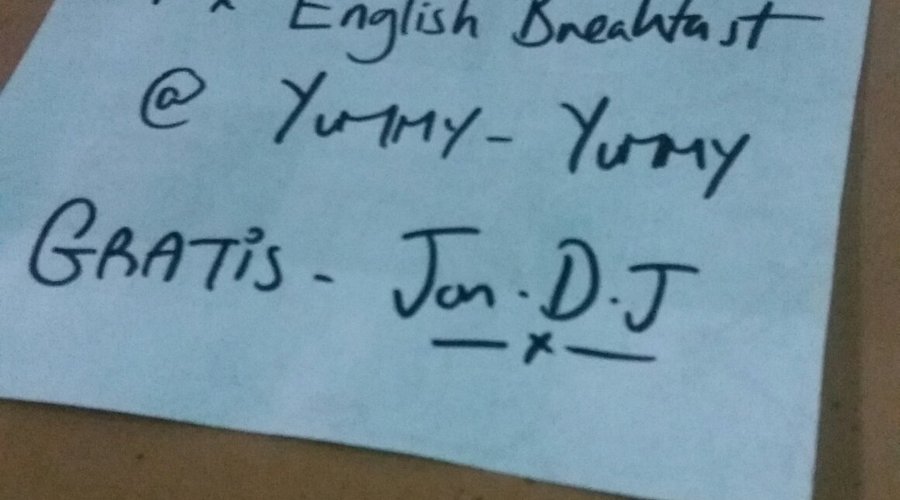 x English Breakfast
@ Yummy - Yummy
GRATiS - Jon. D. J
— x —